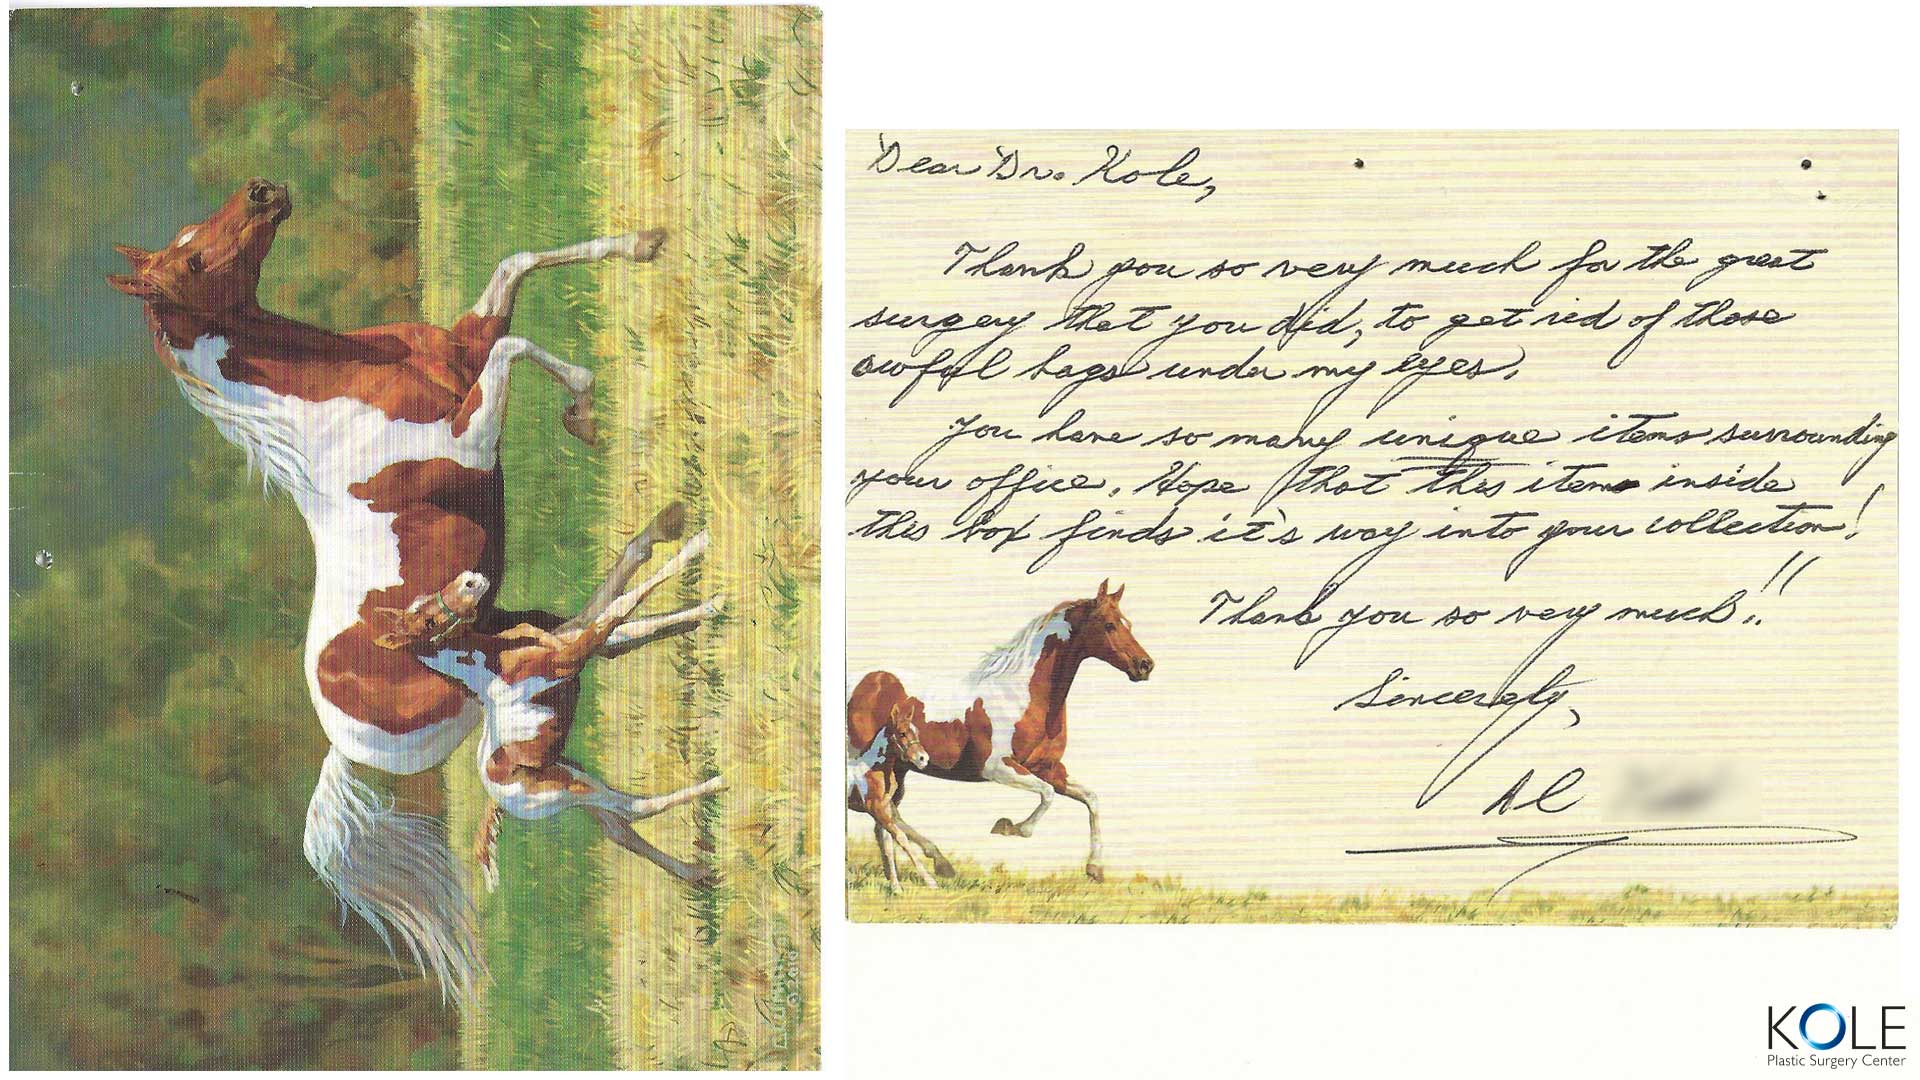 Dear Dr. Kole,
Thank you so very much for the great
surgery that you did, to get rid of those
awful bags under my eyes.
You have so many unique items surrounding
your office. Hope that this item inside
this box finds it's way into your collection!
Thank you so very much!!
Sincerely,
Al
KOLE
Plastic Surgery Center